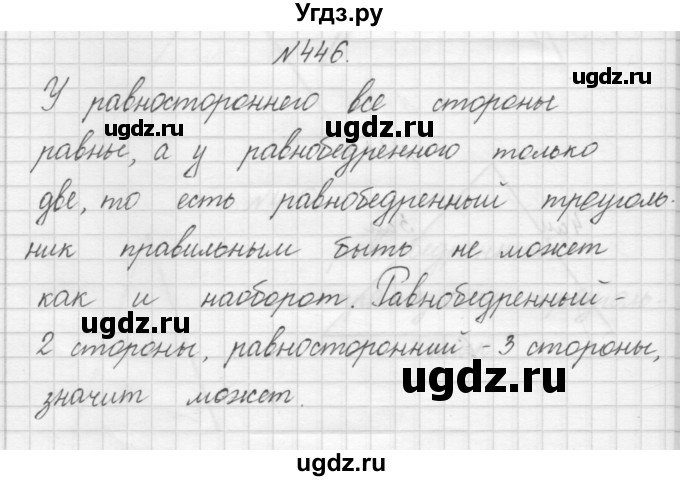 Угдз.ру
№446.
У равностороннего все стороны
ugdz.ru ugdz.ru
равны, а у равнобедренного только
две, то есть равнобедренный треуголь-
ник правильным быть не может
как и наоборот. Равнобедренный -
ugdz.ru
2 стороны, равносторонний - 3 стороны,
ugdz.ru
значит может.
ugdz.ru